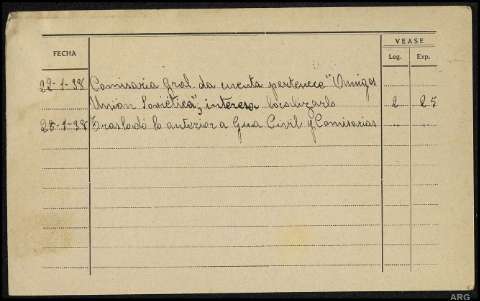 VEASE
FECHA
Leg. Exp.
22-1-38 Comisaria Gral. da cuenta pertenece "Amigos
Union Sovietica", interesa localizarlo 2 27
28-1-38 Trasladó lo anterior a Gua Civil y Comisarias
ARG